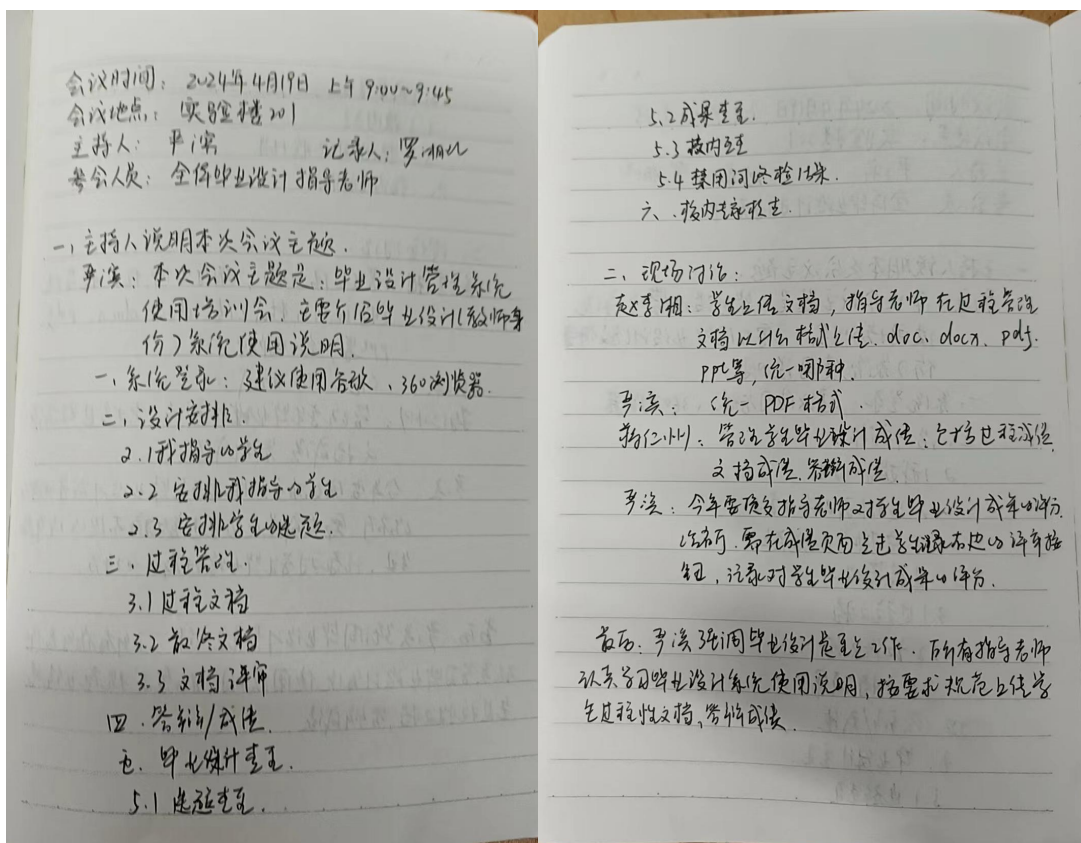 会议时间: 2024年4月19日 上午9:00~9:45
会议地点: 实验楼201
主持人: 严滨 记录人: 罗湘
参会人员: 全体毕业设计指导老师
一、主持人说明本次会议主题.
严滨: 本次会议主题是: 毕业设计管理系统
使用培训会, 主要介绍毕业设计(教师身
份)系统使用说明.
一、系统登录: 建议使用谷歌、360浏览器.
二、设计安排.
2.1我指导的学生
2.2 安排我指导的学生
2.3 安排学生的选题.
三、过程管理.
3.1过程文档
3.2 最终文档
3.3 文档评审
四、答辩/成绩.
五、毕业设计查重.
5.1选题查重.
5.2成果查重.
5.3 校内互查
5.4 禁用词终检结果.
六、校内专家抽查.
二、现场讨论:
赵李湘: 学生上传文档, 指导老师在过程管理
文档以什么格式上传. doc、docx、pdf、
ppt等, 统一哪种.
严滨: 统一PDF格式.
蒋仁州: 管理学生毕业设计成绩: 包括过程成绩
文档成绩、答辩成绩.
严滨: 今年要填各指导老师对学生毕业设计成果的评分.
比如, 需在成绩页面点进学生记录右边的评审按
钮, 记录对学生毕业设计成果的评分.
最后, 严滨强调毕业设计是重点工作. 所有指导老师
认真学习毕业设计系统使用说明, 按要求规范上传学
生过程性文档、答辩成绩.